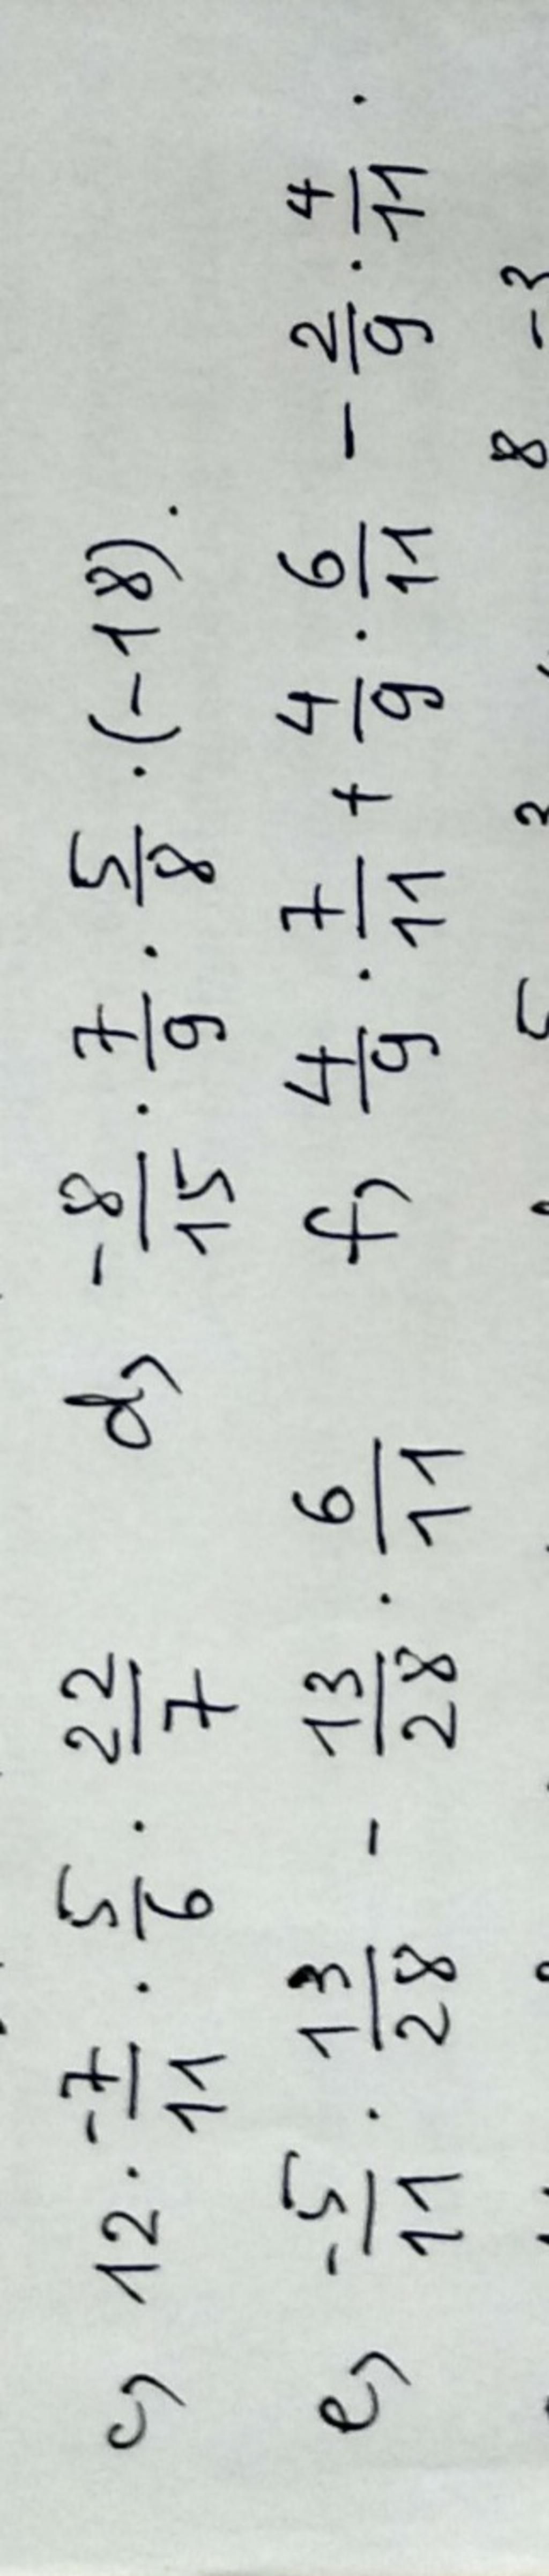 c, 12 · -7/11 · 5/6 · 22/7 d, -8/15 · 7/9 · 5/8 · (-18).
e, -5/11 · 13/28 - 13/28 · 6/11 f, 4/9 · 7/11 + 4/9 · 6/11 - 2/9 · 4/11 .